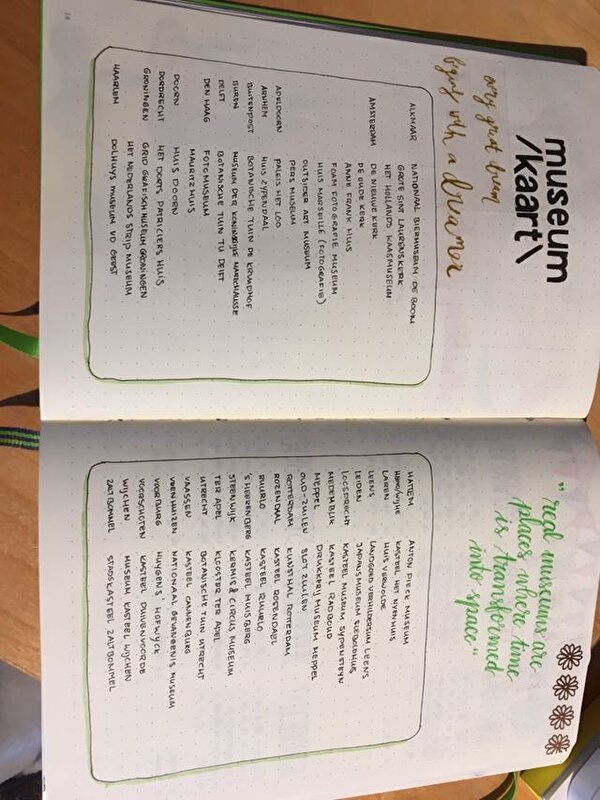 museum
/kaart\
every great dream
begins with a dreamer
ALKMAAR NATIONAAL BIERMUSEUM DE BOOM
GROTE SINT LAURENSKERK
HET HOLLANDS KAASMUSEUM
AMSTERDAM DE NIEUWE KERK
DE OUDE KERK
ANNE FRANK HUIS
FOAM FOTOGRAFIE MUSEUM
HUIS MARSEILLE (FOTOGRAFIE)
OUTSIDER ART MUSEUM
PERS MUSEUM
APELDOORN PALEIS HET LOO
ARNHEM HUIS ZYPENDAAL
BUITENPOST BOTANISCHE TUIN DE KRUIDHOF
BUREN MUSEUM DER KONINKLIJKE MARECHAUSSEE
DELFT BOTANISCHE TUIN TU DELFT
DEN HAAG FOTOMUSEUM
MAURITZHUIS
DOORN HUIS DOORN
DORDRECHT HET DORTS PATRICIERS HUIS
GRONINGEN GRID GRAFISCH MUSEUM GRONINGEN
HET NEDERLANDS STRIP MUSEUM
HAARLEM DOLHUYS MUSEUM VD GEEST
"real museums are
places where time
is transformed
into space"
HATTEM ANTON PIECK MUSEUM
HEINO/WIJHE KASTEEL HET NYENHUIS
LAREN HUIS VERWOLDE
LEENS LANDGOED VERHILDERSUM LEENS
LEIDEN JAPANSMUSEUM SIEBOLDHUIS
LOOSDRECHT KASTEEL MUSEUM SYPENSTEYN
MEDEMBLIK KASTEEL RADBOUD
MEPPEL DRUKKERIJ MUSEUM MEPPEL
OUD-ZUILEN SLOT ZUILEN
ROTTERDAM KUNSTHAL ROTTERDAM
ROZENDAAL KASTEEL ROSENDAEL
RUURLO KASTEEL RUURLO
'S HEERENBERG KASTEEL HUIS BERG
STEENWIJK KERMIS & CIRCUS MUSEUM
TER APEL KLOOSTER TER APEL
UTRECHT BOTANISCHE TUIN UTRECHT
VAASSEN KASTEEL CANNENBURG
VEENHUIZEN NATIONAAL GEVANGENIS MUSEUM
VOORBURG HUYGENS' HOFWYCK
VOORSCHOTEN KASTEEL DUIVENVOORDE
WIJCHEN MUSEUM KASTEEL WIJCHEN
ZALTBOMMEL STADSKASTEEL ZALTBOMMEL